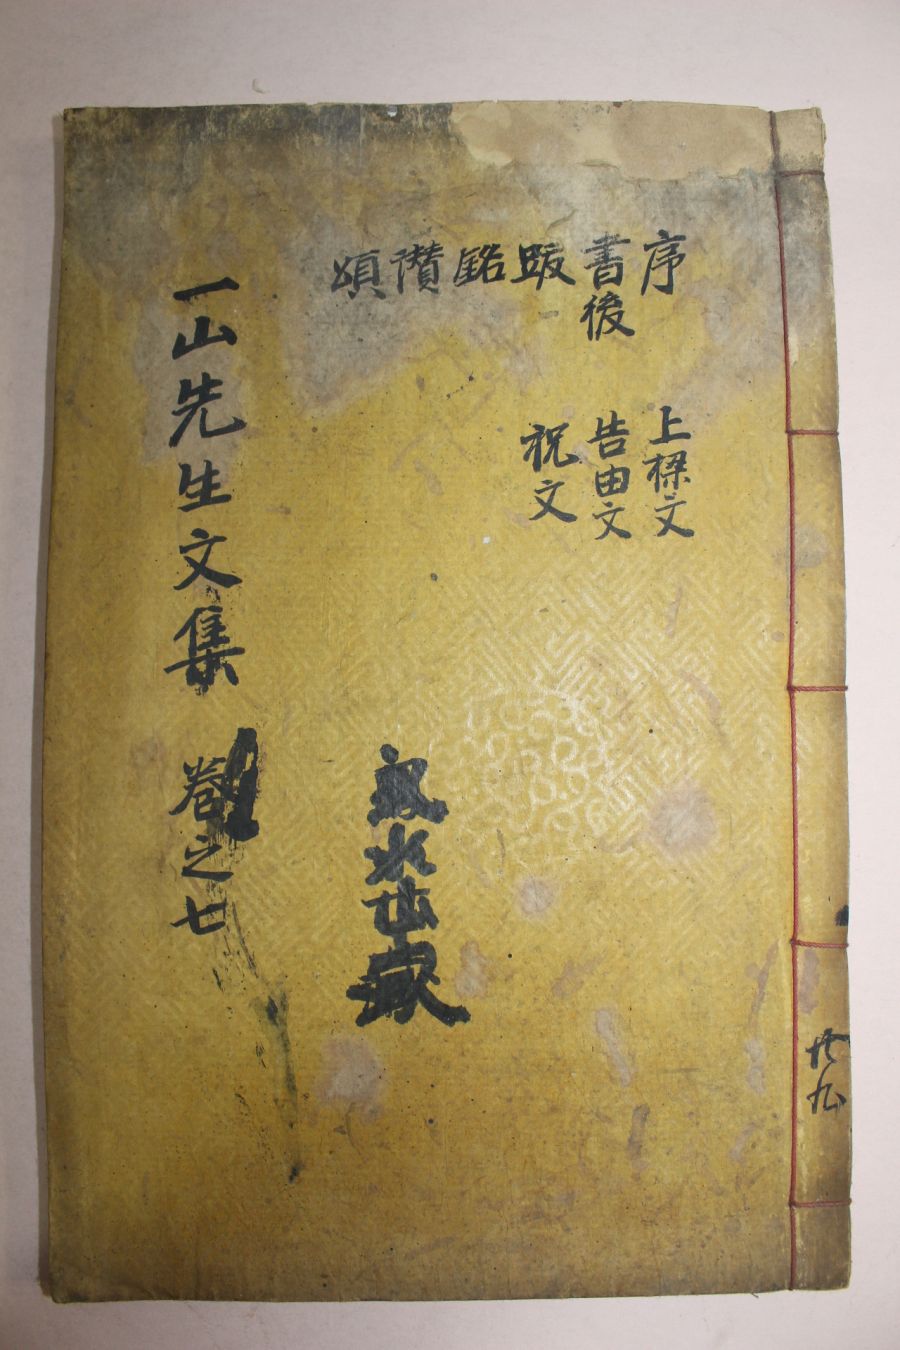 序
書後
跋
銘
讚
頌
上樑文
告由文
祝文
一山先生文集 卷之七
共九